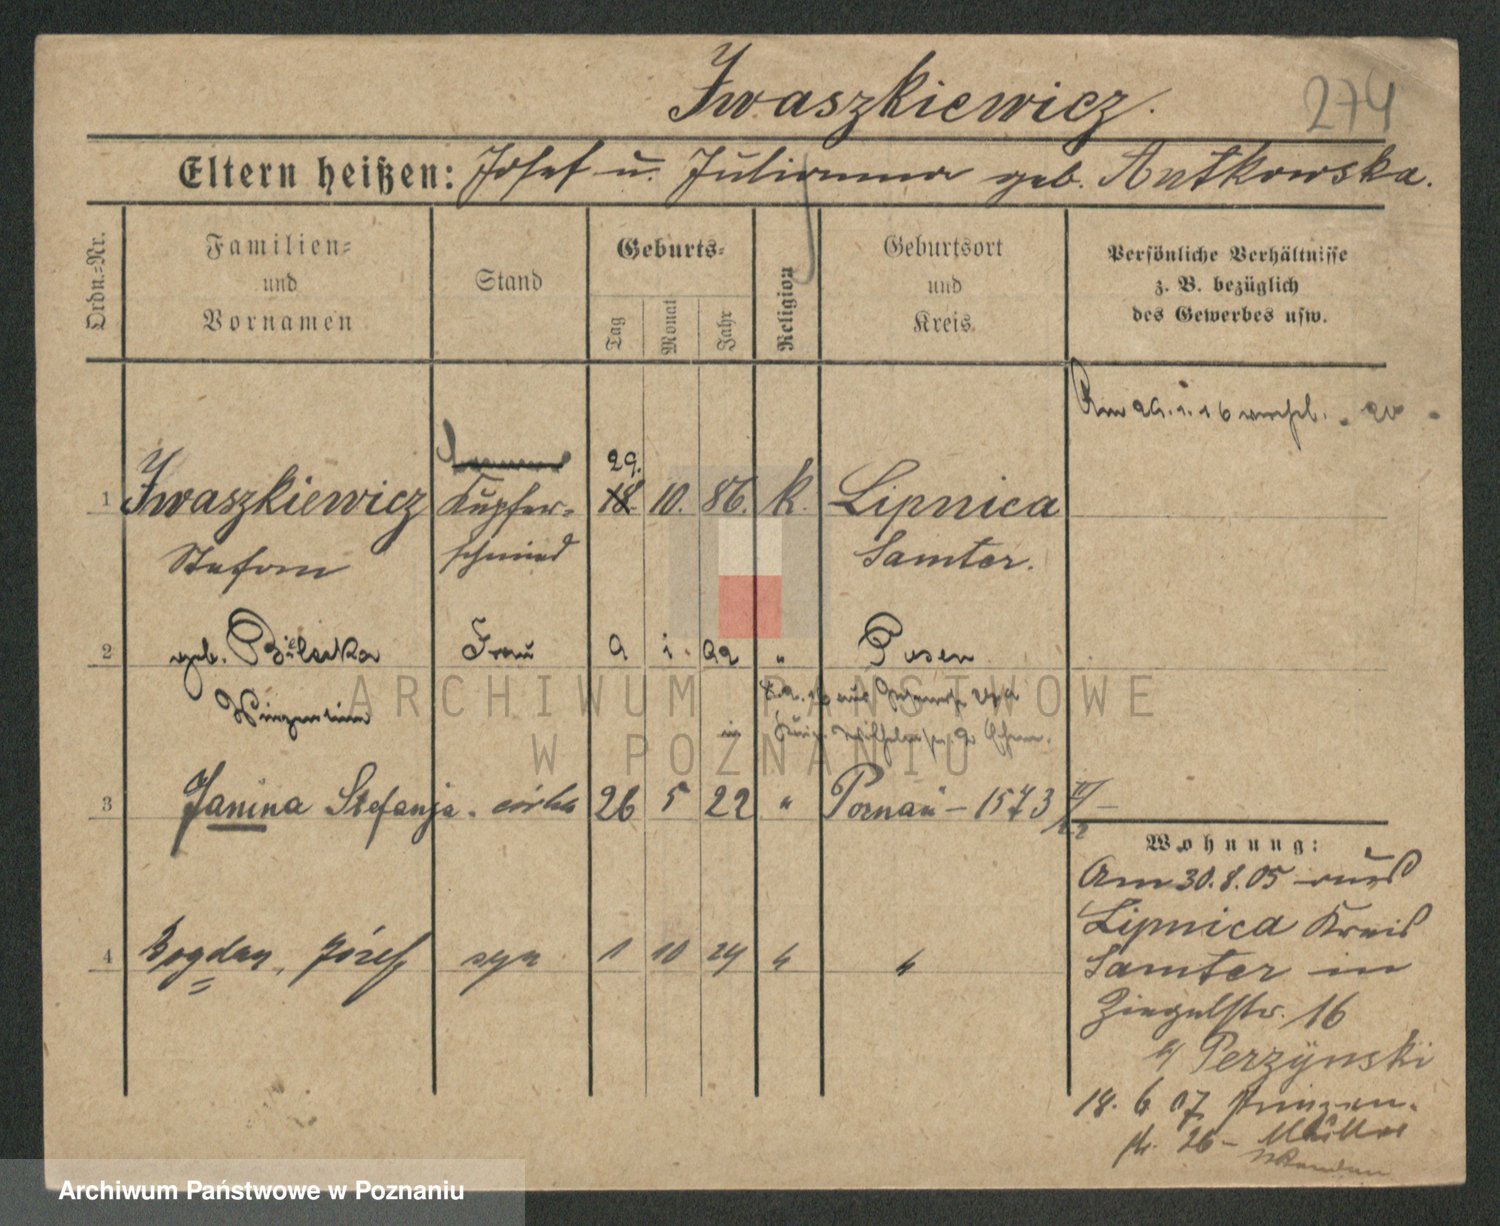 Iwaszkiewicz.
274
Eltern heißen: Josef u. Julianna geb. Antkowska.
Ordn.-Nr.
Familien- und Vornamen
Stand
Geburts-
Tag
Monat
Jahr
Religion
Geburtsort und Kreis
Persönliche Verhältnisse
z. B. bezüglich
des Gewerbes usw.
29.
1 Iwaszkiewicz Kupfer- 18. 10. 86. k. Lipnica
Stefan schmied Samter.
2 geb. Frau 9 1. " Posen
3 Janina Stefanja. córka 26 5 22 " Poznań - 1573
Wohnung:
Am 30.8.05 aus
Lipnica Kreis
Samter in
Ziegelstr. 16
b/ Perzÿnski
4 Bogdan, Józef syn 1 10 24 " "
18. 6 07 Prinzen-
str. 26 -
ARCHIWUM PAŃSTWOWE
W POZNANIU
Archiwum Państwowe w Poznaniu